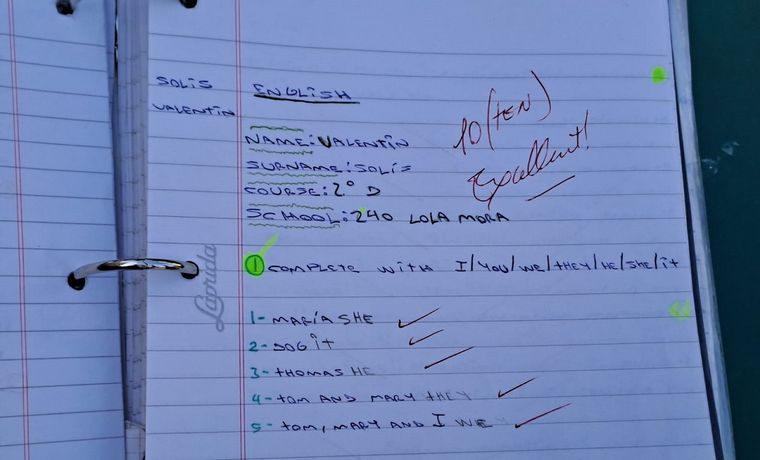 SOLIS
VALENTIN
ENGLISH
10 (TEN)
Excellent!
NAME: VALENTIN
SURNAME: SOLIS
COURSE: 2° D
SCHOOL: 240 LOLA MORA
Laprida
1 COMPLETE WITH I/YOU/WE/THEY/HE/SHE/iT
1- MARÍA SHE
2- DOG iT
3- THOMAS HE
4- TOM AND MARY THEY
5- TOM, MARY AND I WE